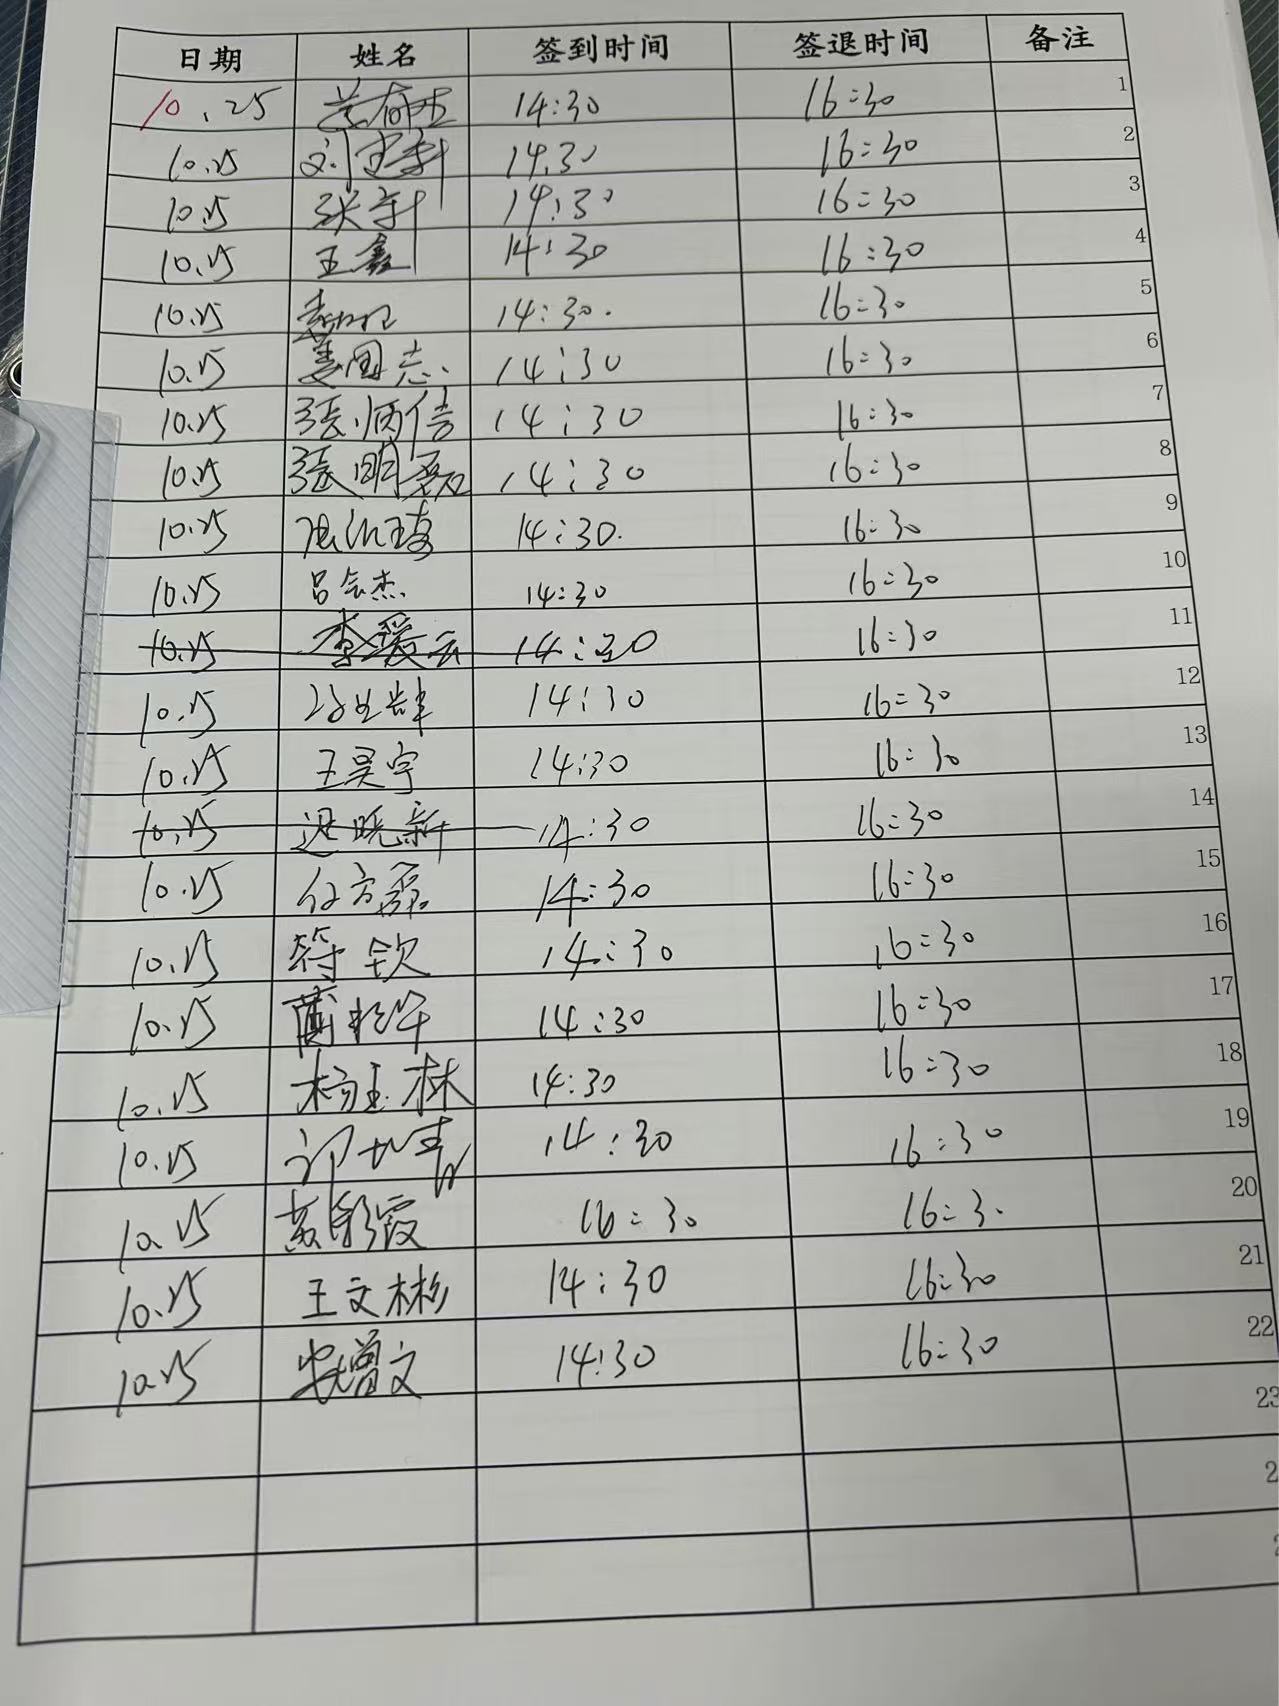 日期 姓名 签到时间 签退时间 备注
10.25 14:30 16:30 1
10.25 刘 14:30 16:30 2
10.25 张军 14:30 16:30 3
10.25 王鑫 14:30 16:30 4
10.25 14:30. 16:30 5
10.25 姜国志 14:30 16:30 6
10.25 張炳信 14:30 16:30 7
10.25 張明磊 14:30 16:30 8
10.25 14:30. 16:30 9
10.25 吕会杰 14:30 16:30 10
10.25 李爱云 14:30 16:30 11
10.25 14:30 16:30 12
10.25 王昊宇 14:30 16:30 13
10.25 晓新 14:30 16:30 14
10.25 14:30 16:30 15
10.25 符钦 14:30 16:30 16
10.25 14:30 16:30 17
10.25 杨玉林 14:30 16:30 18
10.25 14:30 16:30 19
10.25 彩霞 16:30 16:30 20
10.25 王文彬 14:30 16:30 21
10.25 安增文 14:30 16:30 22
23